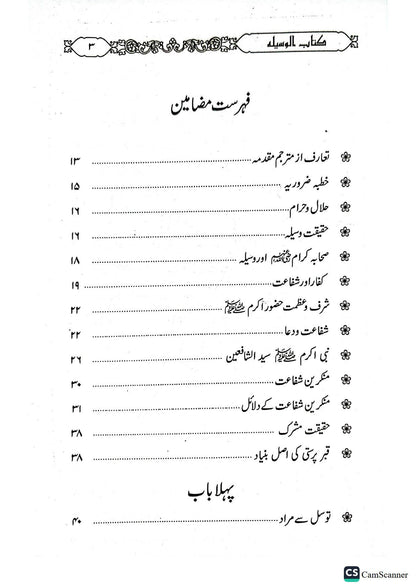 کتاب الوسیلہ ۳
فہرست مضامین
تعارف از مترجم مقدمہ ۱۳
خطبہ ضروریہ ۱۵
حلال و حرام ۱۶
حقیقت وسیلہ ۱۶
صحابہ کرام ﷺ اور وسیلہ ۱۸
کفار اور شفاعت ۱۹
شرف و عظمت حضور اکرم ﷺ ۲۲
شفاعت و دعا ۲۲
نبی اکرم ﷺ سید الشافعین ۲۶
منکرین شفاعت ۳۰
منکرین شفاعت کے دلائل ۳۱
حقیقت مشرک ۳۸
قبر پرستی کی اصل بنیاد ۳۸
پہلا باب
توسل سے مراد ۴۰
CS CamScanner